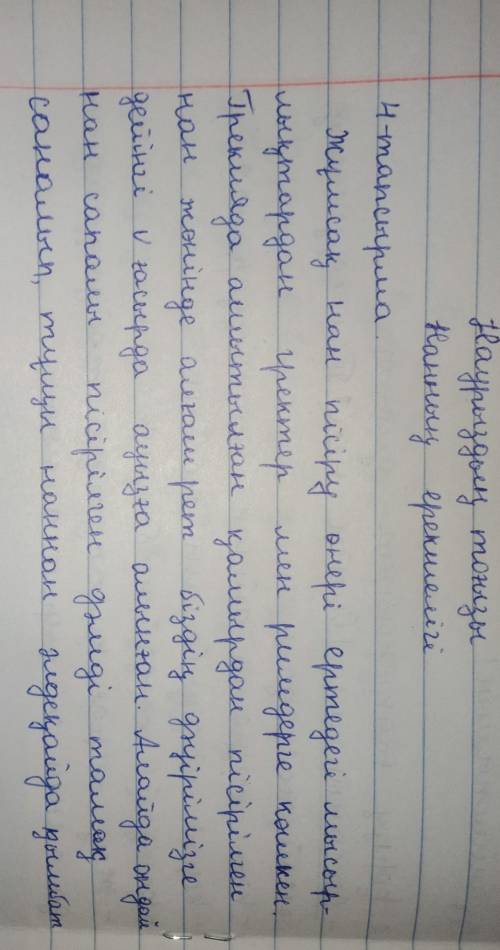 Наурыздың тоғызы
Нанның ерекшелігі
4-тапсырма.
Жұмсақ нан пісіру өнері ертедегі мысыр-
лықтардан гректер мен римдерге көшкен.
Грекияда ашытылған қамырдан пісірілген
нан жөнінде алғаш рет біздің дәуірімізге
дейінгі V ғасырда ауызға алынған. Алайда ондай
нан сапалы пісірілген дәмді тамақ
саналып, тұщы наннан әлдеқайда қымбат